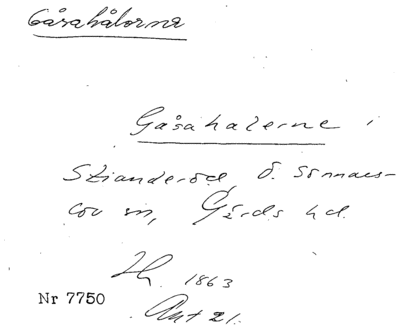 Gåsahålorna
Gåsahalerne i
Skianderöd Ö. Sönnars-
lov sn, Gärds hd.
1863
Nr 7750
Ant 21.